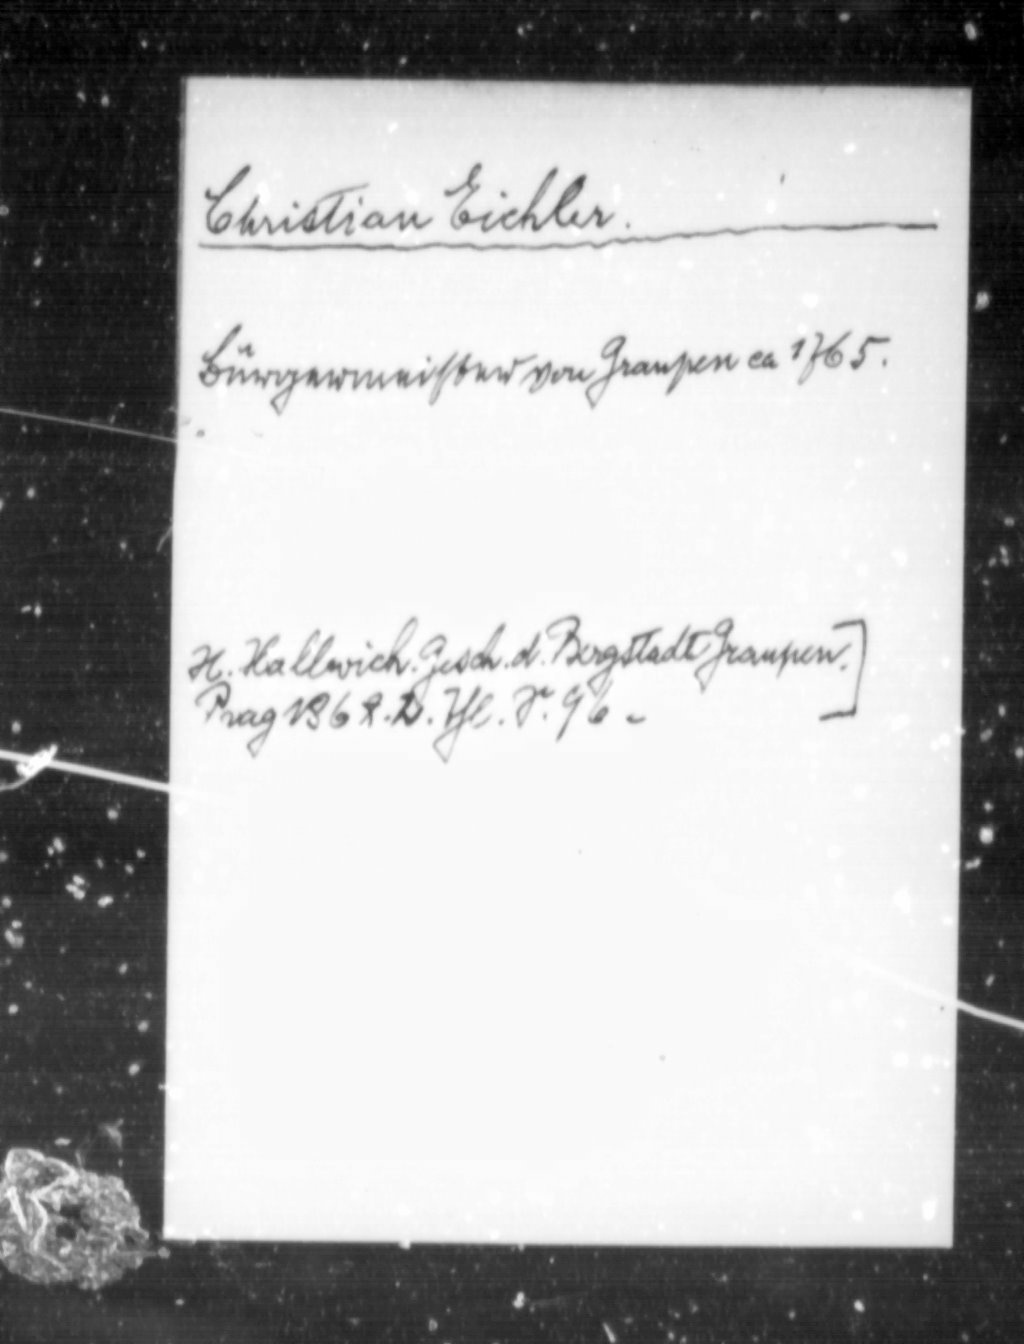 Christian Eichler.
Bürgermeister von Graupen ca 1765.
H. Hallwich. Gesch. d. Bergstadt Graupen.]
Prag 1868. D. Thl. S. 96.